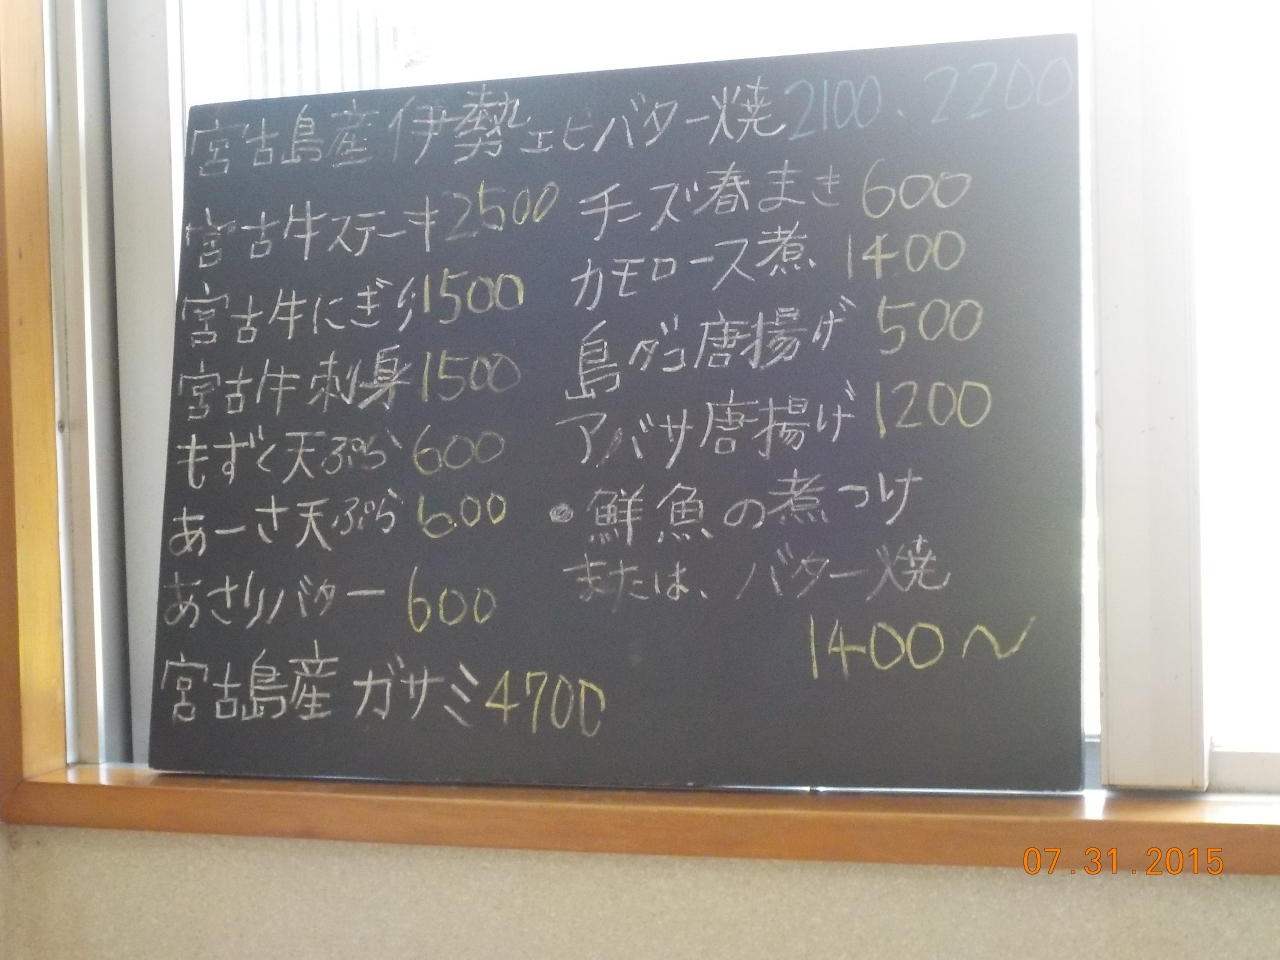 宮古島産伊勢エビバター焼2100、2200
宮古牛ステーキ2500
宮古牛にぎり1500
宮古牛刺身1500
もずく天ぷら600
あーさ天ぷら600
あさりバター 600
宮古島産 ガサミ4700
チーズ春まき 600
カモロース煮 1400
島ダコ唐揚げ 500
アバサ唐揚げ 1200
・鮮魚の煮つけ
または、バター焼
1400〜
07.31.2015